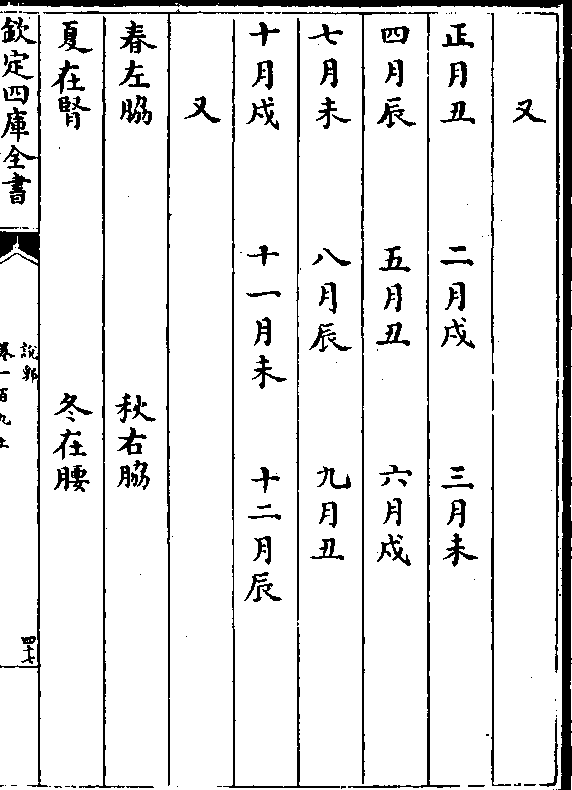 又
正月丑　二月戍　三月未
四月辰　五月丑　六月戍
七月未　八月辰　九月丑
十月戍　十一月未　十二月辰
又
春左脇　秋右脇
夏在腎　冬在腰
欽定四庫全書
說郛
卷一百九上
四七